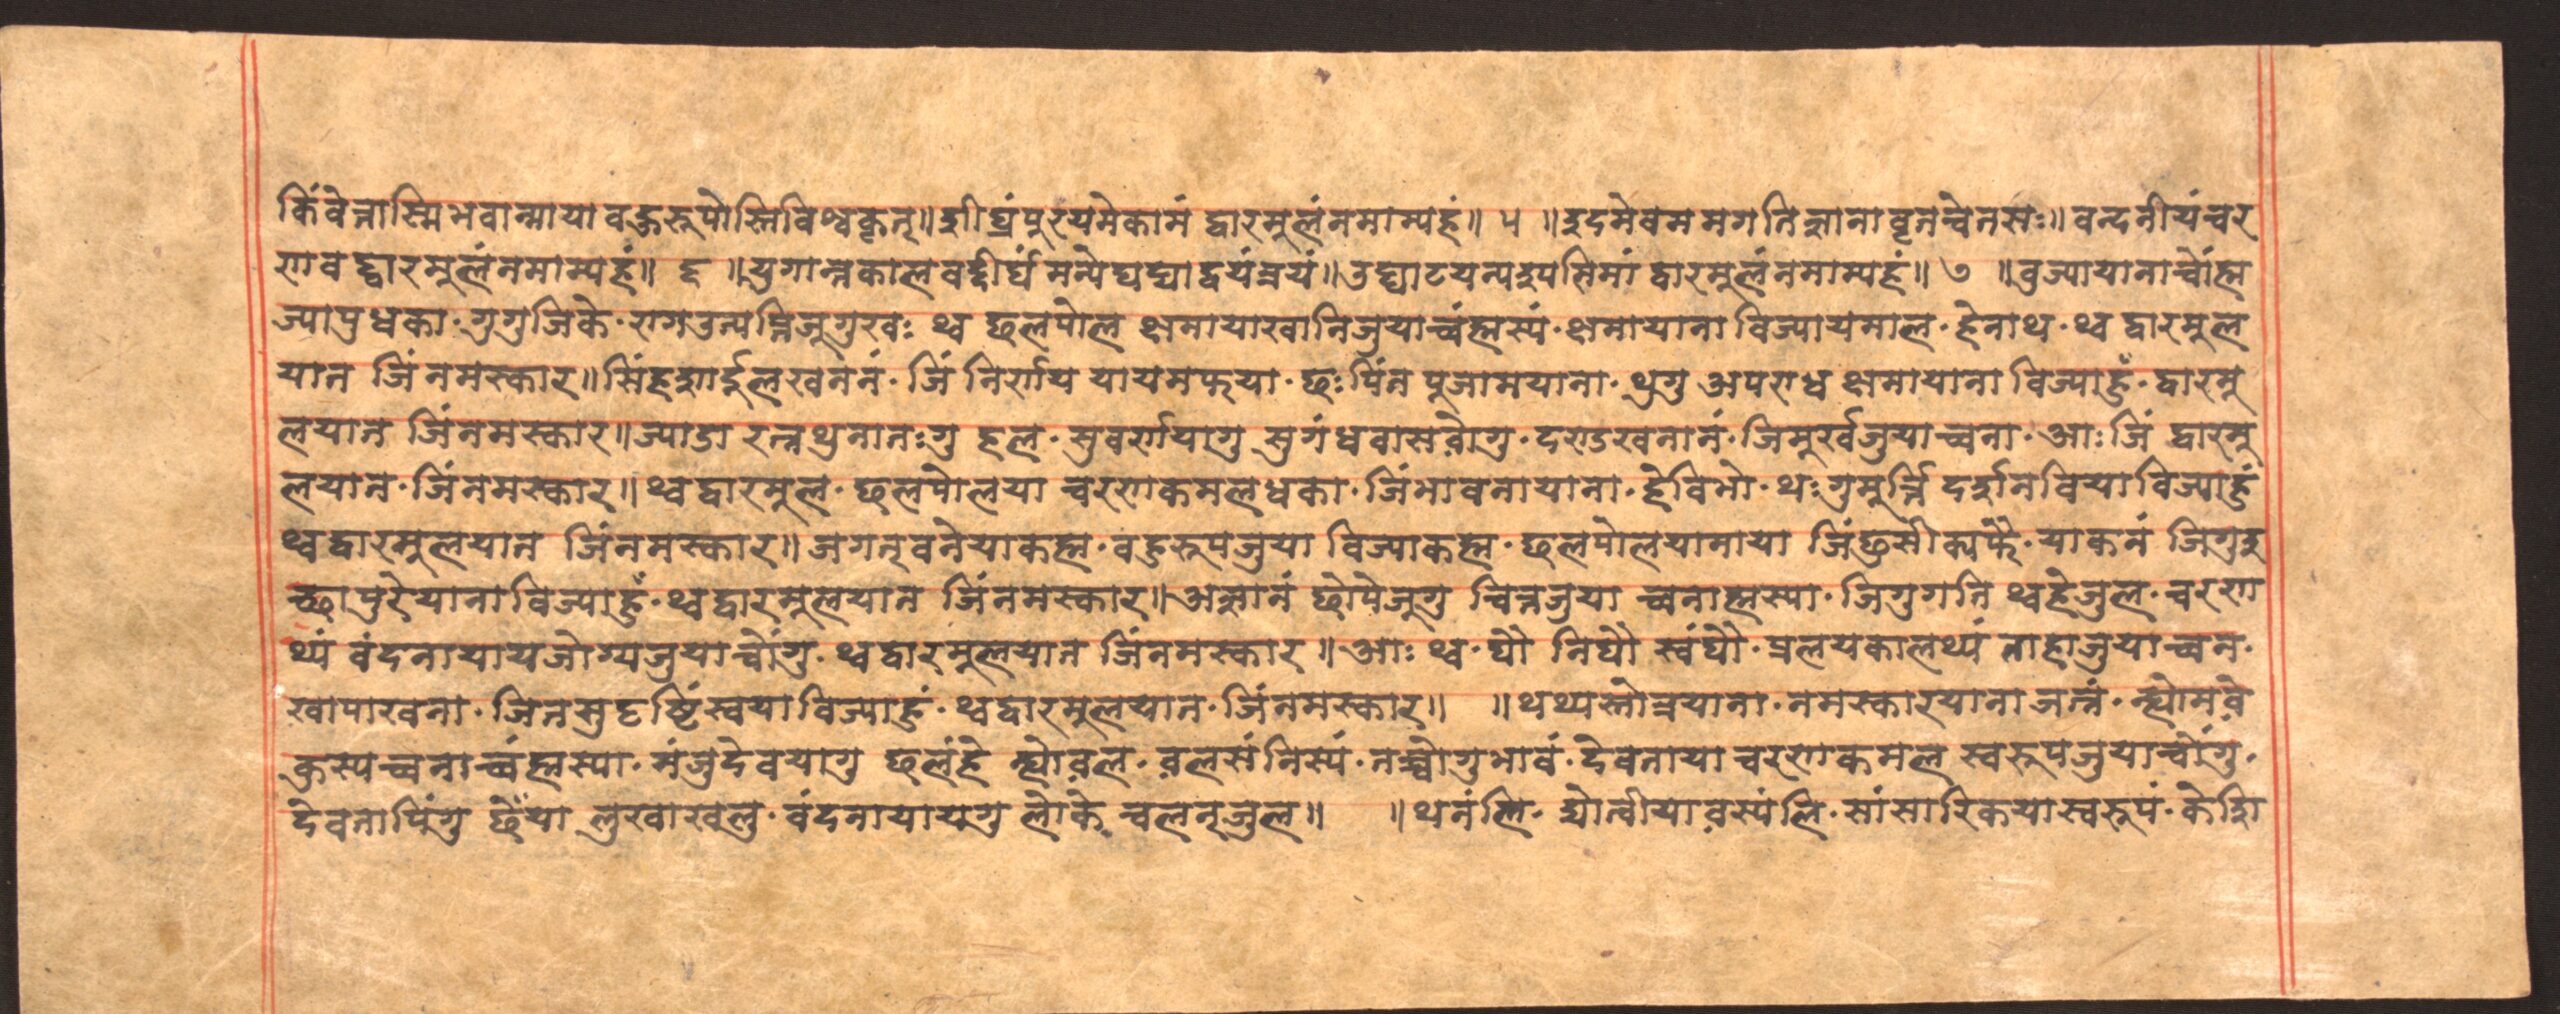 किंवेत्तास्मिभवान्मायावहुरूपोस्तिविश्वकृत्॥शीघ्रंपुरयमेकामं द्वारमुलंनमाम्यहं॥ ५ ॥इदमेवममगतिज्ञानावृतचेतसः॥वन्दनीयंचर
णवद्द्वारमुलंनमाम्यहं॥ ६ ॥युगान्तकालवद्दीर्घंमन्येघघद्याद्वयंत्रयं॥उद्घाटयन्पइपसिमां द्वारमुलंनमाम्यहं॥ ७ ॥वुज्यायानाच्वांह्म
ज्यापुधका॰गुगुजिके॰रागउत्पत्तिजूगुखः थ्व छलपोल क्षमायाखानिजुयाच्वंह्मस्यं॰क्षमायाना विज्यायमाल॰हेनाथ॰थ्व द्वारमुल
यात जिं नमस्कार॥सिंहशार्दुलखनतं॰ जिं निर्णय यायमफया॰छःपिंत पुजामयाना॰थुगु अपराध क्षमायाना विज्याहुँ॰द्वारमु
लयात जिंनमस्कार॥ज्याडा रत्नथुनातःगु हल॰सुवर्णयागु सुगंधवासवोगु॰दण्डखनानं॰जिमुर्खजुयाच्वना॰आः जिं द्वारमु
लयात॰जिंनमस्कार॥थ्वद्वारमुल॰छलपोलया चरणकमलधका॰जिंभावनायाना॰हेविभो॰थःगुमुर्त्ति दर्शनवियाविज्याहुं
थ्वद्वारमुलयात जिंनमस्कार॥जगत्वनेयाकह्म॰वहुरूपजुया विज्याकह्म॰छलपोलयामाया जिंछुसीकाफै॰याकनं जिगुइ
च्छापुरेयानाविज्याहुँ॰थ्वद्वारमुलयात जिंनमस्कार॥अज्ञानं छोपेजुगु चित्तजुया च्वनाह्मस्या॰जिगुगति थ्वहेजुल॰चरण
थ्यं वंदनायायजोग्यजुयाच्वोंगु॰थ्वद्वारमुलयात जिंनमस्कार॥आः थ्व॰घौ निघौ स्वंघौ॰प्रलयकालथ्यं ताहाजुयाच्वन॰
खापाखना॰जितसुदृष्टिंस्वयाविज्याहुं॰थ्वद्वारमुलयात॰जिंनमस्कार॥ ॥थथ्यस्तोत्रयाना॰नमस्कारयाना
क्रुस्यच्वनाच्वंह्मस्या॰मंजुदेवयागु छलंहे॰देवतायाचरणकमल स्वरूपजुयाच्वोंगु॰
देवतापिंगु छेंया लुखाखलु॰वंदनायायगु लोके चलनजुल॥ ॥थनंलि॰द्योत्वीयावस्यंलि॰सांसारिकयास्वरूपं॰केशि